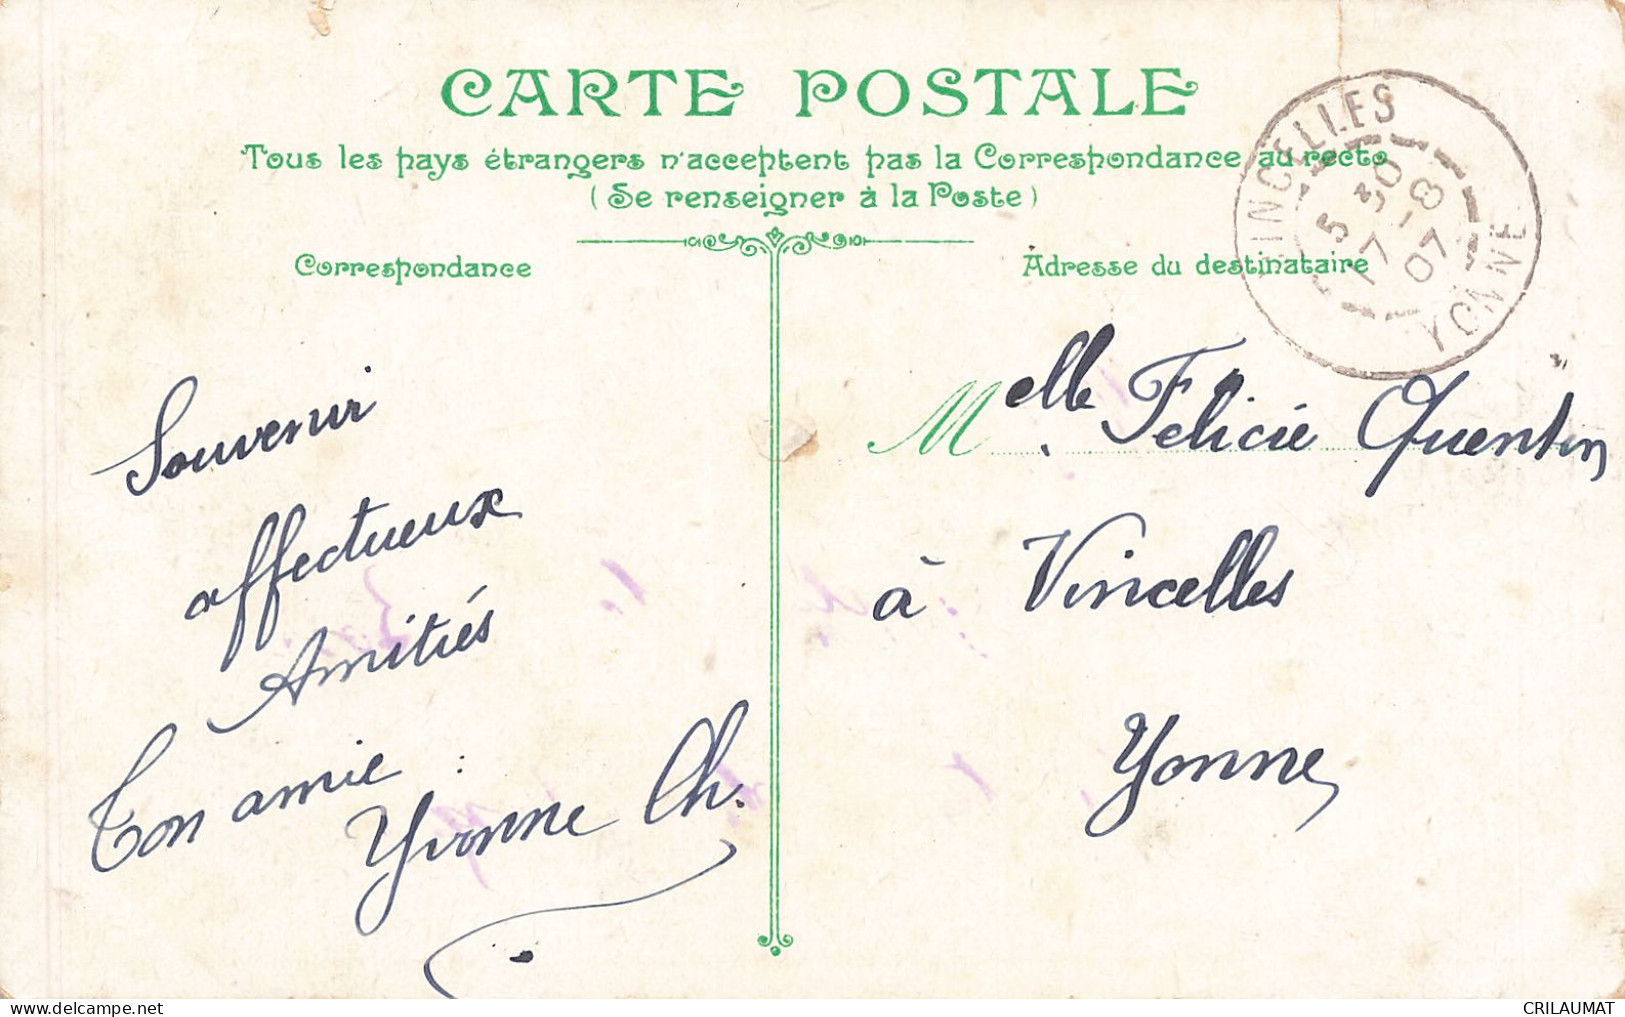 CARTE POSTALE
Tous les pays étrangers n'acceptent pas la Correspondance au recto
(Se renseigner à la Poste)
Correspondance
Adresse du destinataire
VINCELLES
5 30
17 - 8
07
YONNE
Souvenir
affectueux
Amitiés
Ton amie :
Yvonne Ch.
Melle Felicie Quentin
à Vincelles
Yonne
CRILAUMAT